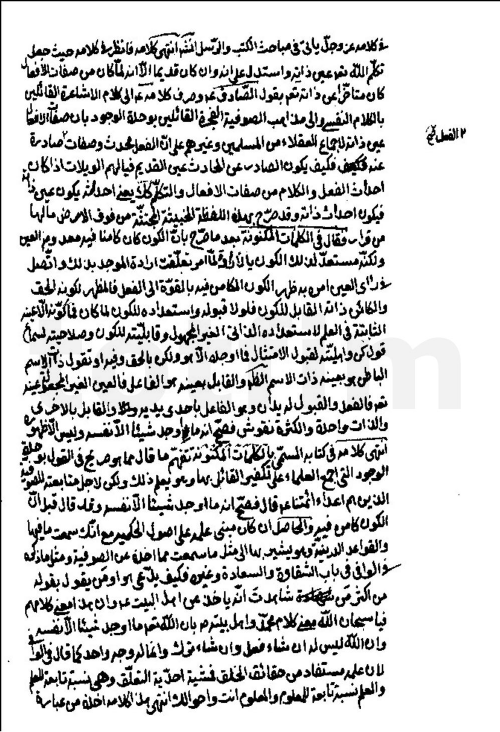 فى كلامه عز وجل ياتى فى مباحث الكتب والرسل انتهى كلامه فانظر فى كلامه حيث جعل
تكلم الله تعالى عين ذاته واستدل على انه وان كان قديما الا انه لما كان من صفات الافعال
كان متاخرا عن ذاته تعالى بقول الصادق وصرف كلامه الى كلام الاشاعرة القائلين
بالكلام النفسى والى مذاهب الصوفية القائلين بوحدة الوجود بان صفات الافعال
عين ذاته لاجماع العقلاء من المسلمين وغيرهم على ان الفعل محدث وصفات صادرة
عنه فكيف يكون الصادر عن الحادث عين القديم فيالهم الويلات اذا كان
احداث الفعل والكلام من صفات الافعال والتكلم يعنى احداثه يكون عين ذاته
فيكون احداث ذاته وقد صرح بهذه اللفظة الخبيثة المجتثة من فوق الارض مالها
من قرار فقال فى الكلمات المكنونة بعد ما صرح بان الكون كان كامنا فيه معدوم العين
ولكنه مستعد لذلك الكون بالامر ولما امر تعلقت ارادة الموجد بذلك واتصل
فى راى العين امره به ظهر الكون الكامن فيه بالقوة الى الفعل فالمظهر لكونه الحق
والكائن ذاته القابل للكون فلولا قبوله واستعداده للكون لما كان فما كونه الا عينه
الثابتة فى العلم لاستعداده الذاتى الغير المجعول وقابليته للكون وصلاحيته لسماع
قول كن واهليته لقبول الامتثال فما اوجده الا هو ولكن بالحق وفيه او نقول ذات الاسم
الباطن هو بعينه ذات الاسم الظاهر والقابل بعينه هو الفاعل فالعين الغير المجعولة عينه
تعالى فالفعل والقبول له يدان وهو الفاعل باحدى يديه والقابل بالاخرى
والذات واحدة والكثرة نقوش فصح انه ما اوجد شيئا الا نفسه وليس الا ظهوره
انتهى كلامه فى كتابه المسمى بالكلمات المكنونة تفهم ما قال مما هو صريح فى القول بوحدة
الوجود التى اجمع العلماء على تكفير القائل بها وهو يعلم ذلك ولكن لاجل متابعة الصوفية
الذين هم اعداء ائمتنا عم قال فصح انه ما اوجد شيئا الا نفسه وقد قال قبل ان
الكون كامن فيه والحاصل ان كان مبنى علمه على اصول الحكمية مع انك سمعت ما فيها
والقواعد الدينية وهو يشير بها الى مثل ما سمعت مما اخذه عن الصوفية ومثل ما ذكره
فى الوافى فى باب الشقاوة والسعادة وغيره فكيف يدعى هو او من يقول بقوله
من اكثر من شاهدت انه ياخذ عن اهل البيت عم وان هذا معنى كلامهم
فيا سبحان الله يعنى كلام محمد واهل بيته ص بان الله تعالى ما اوجد شيئا الا نفسه
وان الله ليس له ان شاء فعل وان شاء ترك وانما له وجه واحد كما قال فى الوافى
لان علمه مستفاد من حقائق الخلق فمشية احدية التعلق وهى نسبة تابعة للعلم
والعلم نسبة تابعة للمعلوم والمعلوم انت واحوالك انتهى هذا كلامه اخذه من عبارة